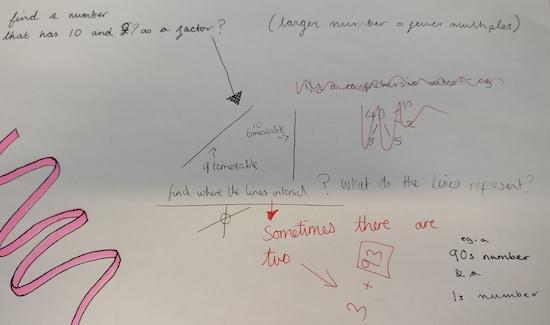 find a number
that has 10 and 9? as a factor?
(larger number = fewer multiples)
10
timestable
9 timestable
find where the lines intersal
? What do the lines represent?
Sometimes there are
two
93
+
3
eg. a
90s number
& a
1s number